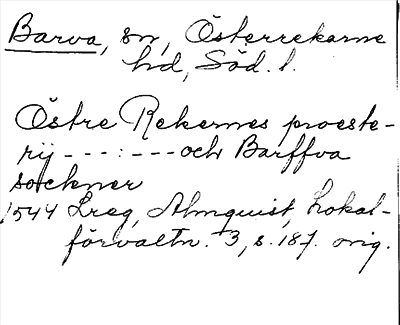 Barva, sn, Österrekarne
hd, Söd. l.
Östre Rekernes proeste-
rij - - - : - - - och Barffva
sockner
1544 Lreg, Almquist, Lokal-
förvaltn. 3, s. 187. orig.